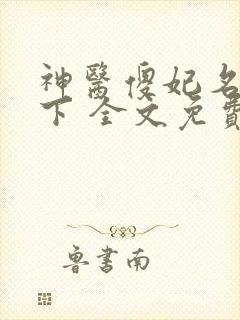 神醫傻妃名
下 全文免費
魯書南